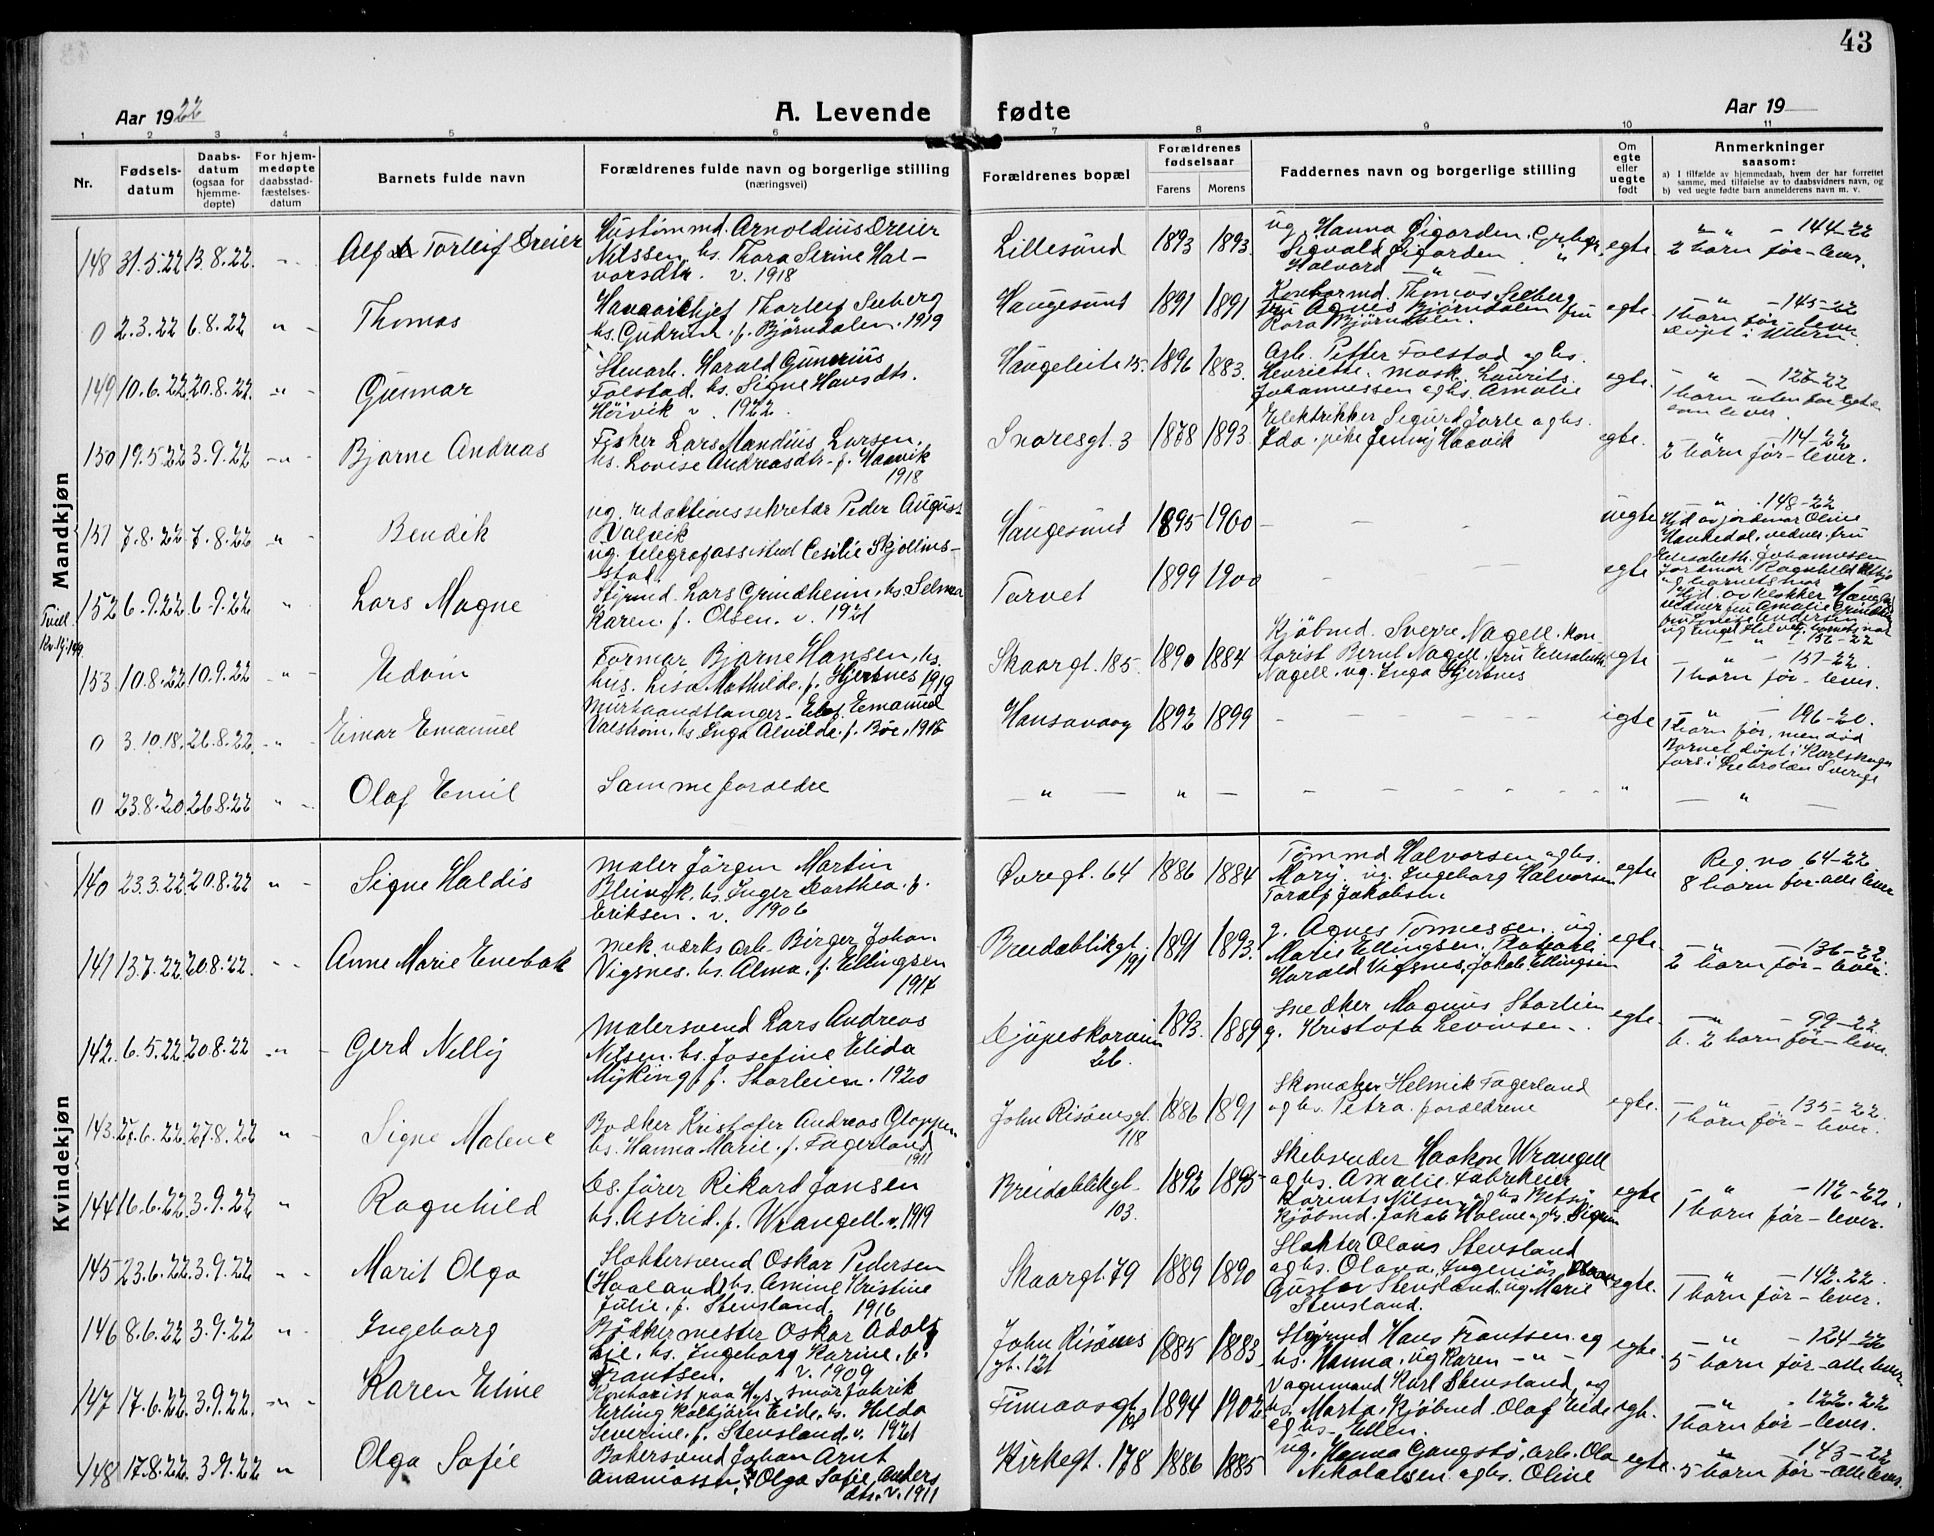 43
Aar 1922
A. Levende fødte
Aar 19
1 2 3 4 5 6 7 8 9 10 11
Nr.
Fødsels-
datum
Daabs-
datum
(ogsaa for
hjemme-
døpte)
For hjem-
medøpte
daabsstad-
fæstelses-
datum
Barnets fulde navn
Forældrenes fulde navn og borgerlige stilling
(næringsvei)
Forældrenes bopæl
Forældrenes
fødselsaar
Farens Morens
Faddernes navn og borgerlige stilling
Om
egte
eller
uegte
født
Anmerkninger
saasom:
a) I tilfælde av hjemmedaab, hvem der har forrettet
samme, med tilføielse av to daabsvidners navn, og
b) ved uegte fødte barn anmelderens navn m. v.
Mandkjøn
148 31.5.22 13.8.22 Alf Torleif Dreier
Arnoldius Dreier
Nilssen hs. Thora Serine Hal-
vorsdtr. v. 1918
Lillesund 1893 1893
ug Hanna Digorden
Sigvald Digorden
Halvard "
egte. " - 144-22
2 barn før - lever.
0 2.3.22 6.8.22 " - Thomas
Thorleif Seeberg
hs. Gudrun f. Bjørndalen. 1919
Haugesund 1891 1891
Kontormd. Thomas Seeberg
fru Agnes Bjørndalen fru
Kora Bjørndalen.
egte. - " - 145-22
1 barn før - lever
Døpt i Ullern.
149 10.6.22 20.8.22 - " - Gunnar
Stenarb. Harald Gunerius
Folstad. hs. Signe Hansdt.
Høivik v. 1922.
Haugeleite 15. 1896 1883.
Arb. Petter Folstad og hs.
Henriette. mask. Laurits
Johannessen og hs. Amalie
egte. - " - 126-22
1 barn uten for egte
som lever.
150 19.5.22 3.9.22 - " - Bjarne Andreas
Fisker Lars Mandius Larsen.
hs. Lovise Andreasdtr. f. Haavik
1918
Snoresgt. 3 1878 1893.
Elektrikker Sigurd Jarle og hs.
Ida. pike Jenny Haavik
egte. - " - 114-22
2 barn før - lever.
151 7.8.22 7.8.22 " Bendik
ug. redaktionssekretær Peder August
Valvik
ug. telegrafassistend Cesilie Skjollins-
stad
Haugesund 1895 1900 - - - -
uegte " . 148-22
Hjd. av jordmor Oline
Haukedal, vednes. fru
Elisabeth Johannessen
152 6.9.22 6-9.22 " Lars Magne
Styrmd. Lars Grindheim, hs. Selma
Karen. f. Olsen. v. 1921
Torvet 1899 1900 - - -
egte
Jordmor Ragnhild
og barnets mor
Hjd. av klokker
vedner fru Amalie
Andersen
153 10.8.22 10.9.22 " - Edvin
Tvil.
Formar Bjarne Hansen, hs.
hus. Lisa Mathilde. f. Hjersnes 1919
Skaargt. 185. 1890 1884
Kjøbmd. Sverre Nagell. kon-
torist Bernt Nagell. fru Elisabeth
Nagell. ug. Inga Hjersnes
egte - " - 151-22.
1 barn før - lever.
0 3.10.18. 26.8.22. - " - Einar Emanuel
Emanuel
Valstrøm, hs. Inga Alvilde. f. Bøe.
Hansavaag 1892 1899 - - - - -
egte - " - 196-20.
1 barn før, men død
Barnet døpt i Karlskoga
Sverige
0 23.8.20. 26.8.22 " - Olaf Emil
Samme foreldre
- " - " - - - - - " - " -
Kvindekjøn
140 23.3.22 20.8.22 " - Signe Haldis
Maler Jørgen Martin
hs. Inger Dorthea. f.
Eriksen. v. 1906
Øvregt. 64 1886 1884
Tømmd Halvorsen og hs.
Mary. ug. Ingeborg Halvorsen
Toralf Jakobsen
egte Reg. no 64-22
8 barn før - alle lever
141 13.7.22 20.8.22. - - Anne Marie Enebak
Mek. værks arb. Birger Johan
Vigsnes. hs. Alma. f. Ellingsen
1914
Breidablikgt. 191 1891 1893.
g. Agnes Tønnessen. ug.
Marie Ellingsen,
Harald Vigsnes. Jakob Ellingsen
egte - " - 136-22.
2 barn før - lever.
142. 6.5.22 20.8.22 - " - Gerd Nelly
Malersvend Lars Andreas
Nilsen. hs. Josefine Elida
Myking. f. Storleien. 1920
26. 1893. 1889
Snedker Magnus Storlien
g. Kristofa Levinsen.
egte. - " - 99-22.
2 barn før - lever.
143. 27.6.22. 27.8.22 " - Signe Malene
Bødker Kristofer Andreas Gloppen
hs. Hanna Marie. f. Fagerland
1911
John Risøensgt. 118 1886 1891
Skomaker Helmik Fagerland
og hs. Petra. forældrene
egte. - " - 135-22.
1 barn før - lever.
144 16.6.22. 3.9.22 " Ragnhild
Bs. fører Rikard Jansen
hs. Astrid. f. Wrangell. v. 1919
Breidablikgt. 103. 1892 1895
Skibsreder Haakon Wrangell
og hs. Amalie. Fabrikeier
Nilsen og hs Betsy
Kjøbmd. Jakob Holme og hs. Sigrun
egte - " - 112-22.
1 barn før - lever.
145 23.6.22. 3.9.22 " - Marit Olga
Slaktersvend Oskar Pedersen
(Haaland) hs. Amine Kristine
Julie. f. Stensland. 1916
Skaargt. 79 1889 1890
Slakter Olaus Stensland
og hs. Olava. Ingeniør
Gustav Stensland. ug Marie
Stensland.
egte. - " - 142.22.
1 barn før - lever.
146 8.6.22 3.9.22 " - Ingeborg
Bødkermester Oskar Adolf
Lie. hs. Ingeborg Karine. f.
Frantsen. v. 1909
John Risøens
gt. 121 1885 1883
Styrmd Hans Frantsen og
hs. Hanna, ug Karen - " -
egte. - " - 124-22
5 barn før - alle lever
147 17.6.22. 3.9.22. - " - Karen Eline
Kontorist paa Hgs. smørfabrik
Erling Kolbjørn Eide. hs. Hilda
Severine. f. Stensland. v. 1921
1894 1902
Vognmand Karl Stensland og
hs. Marta. Kjøbmd. Olaf Eide
og hs. Ellen.
egt. " . 122.22
1 barn før - lever.
148 17.8.22. 3.9.22 " Olga Sofie
Bakersvend Johan Arnt
hs. Olga Sofie Anders
dtr. v. 1911
Kirkegt. 178 1886 1885
ug. Hanna Gangstø, Arb. Ola
Nikolaisen og hs. Oline
egte. " - 143-22
5 barn før - alle lever.